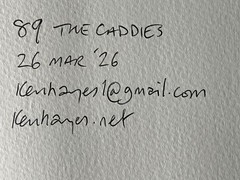 89 THE CADDIES
26 MAR '26
kenhayes1@gmail.com
kenhayes.net